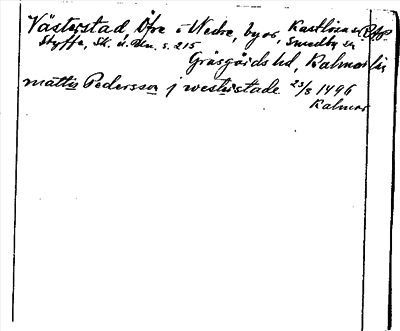 Västerstad, Öfre o Nedre, byar, Kastlösa sn Rap
Styffe, Sk. u. Un. s. 215 Smedby sn
Gräsgårds hd, Kalmar län
mattis Pedersson j westerstade 23/8 1496
Kalmar